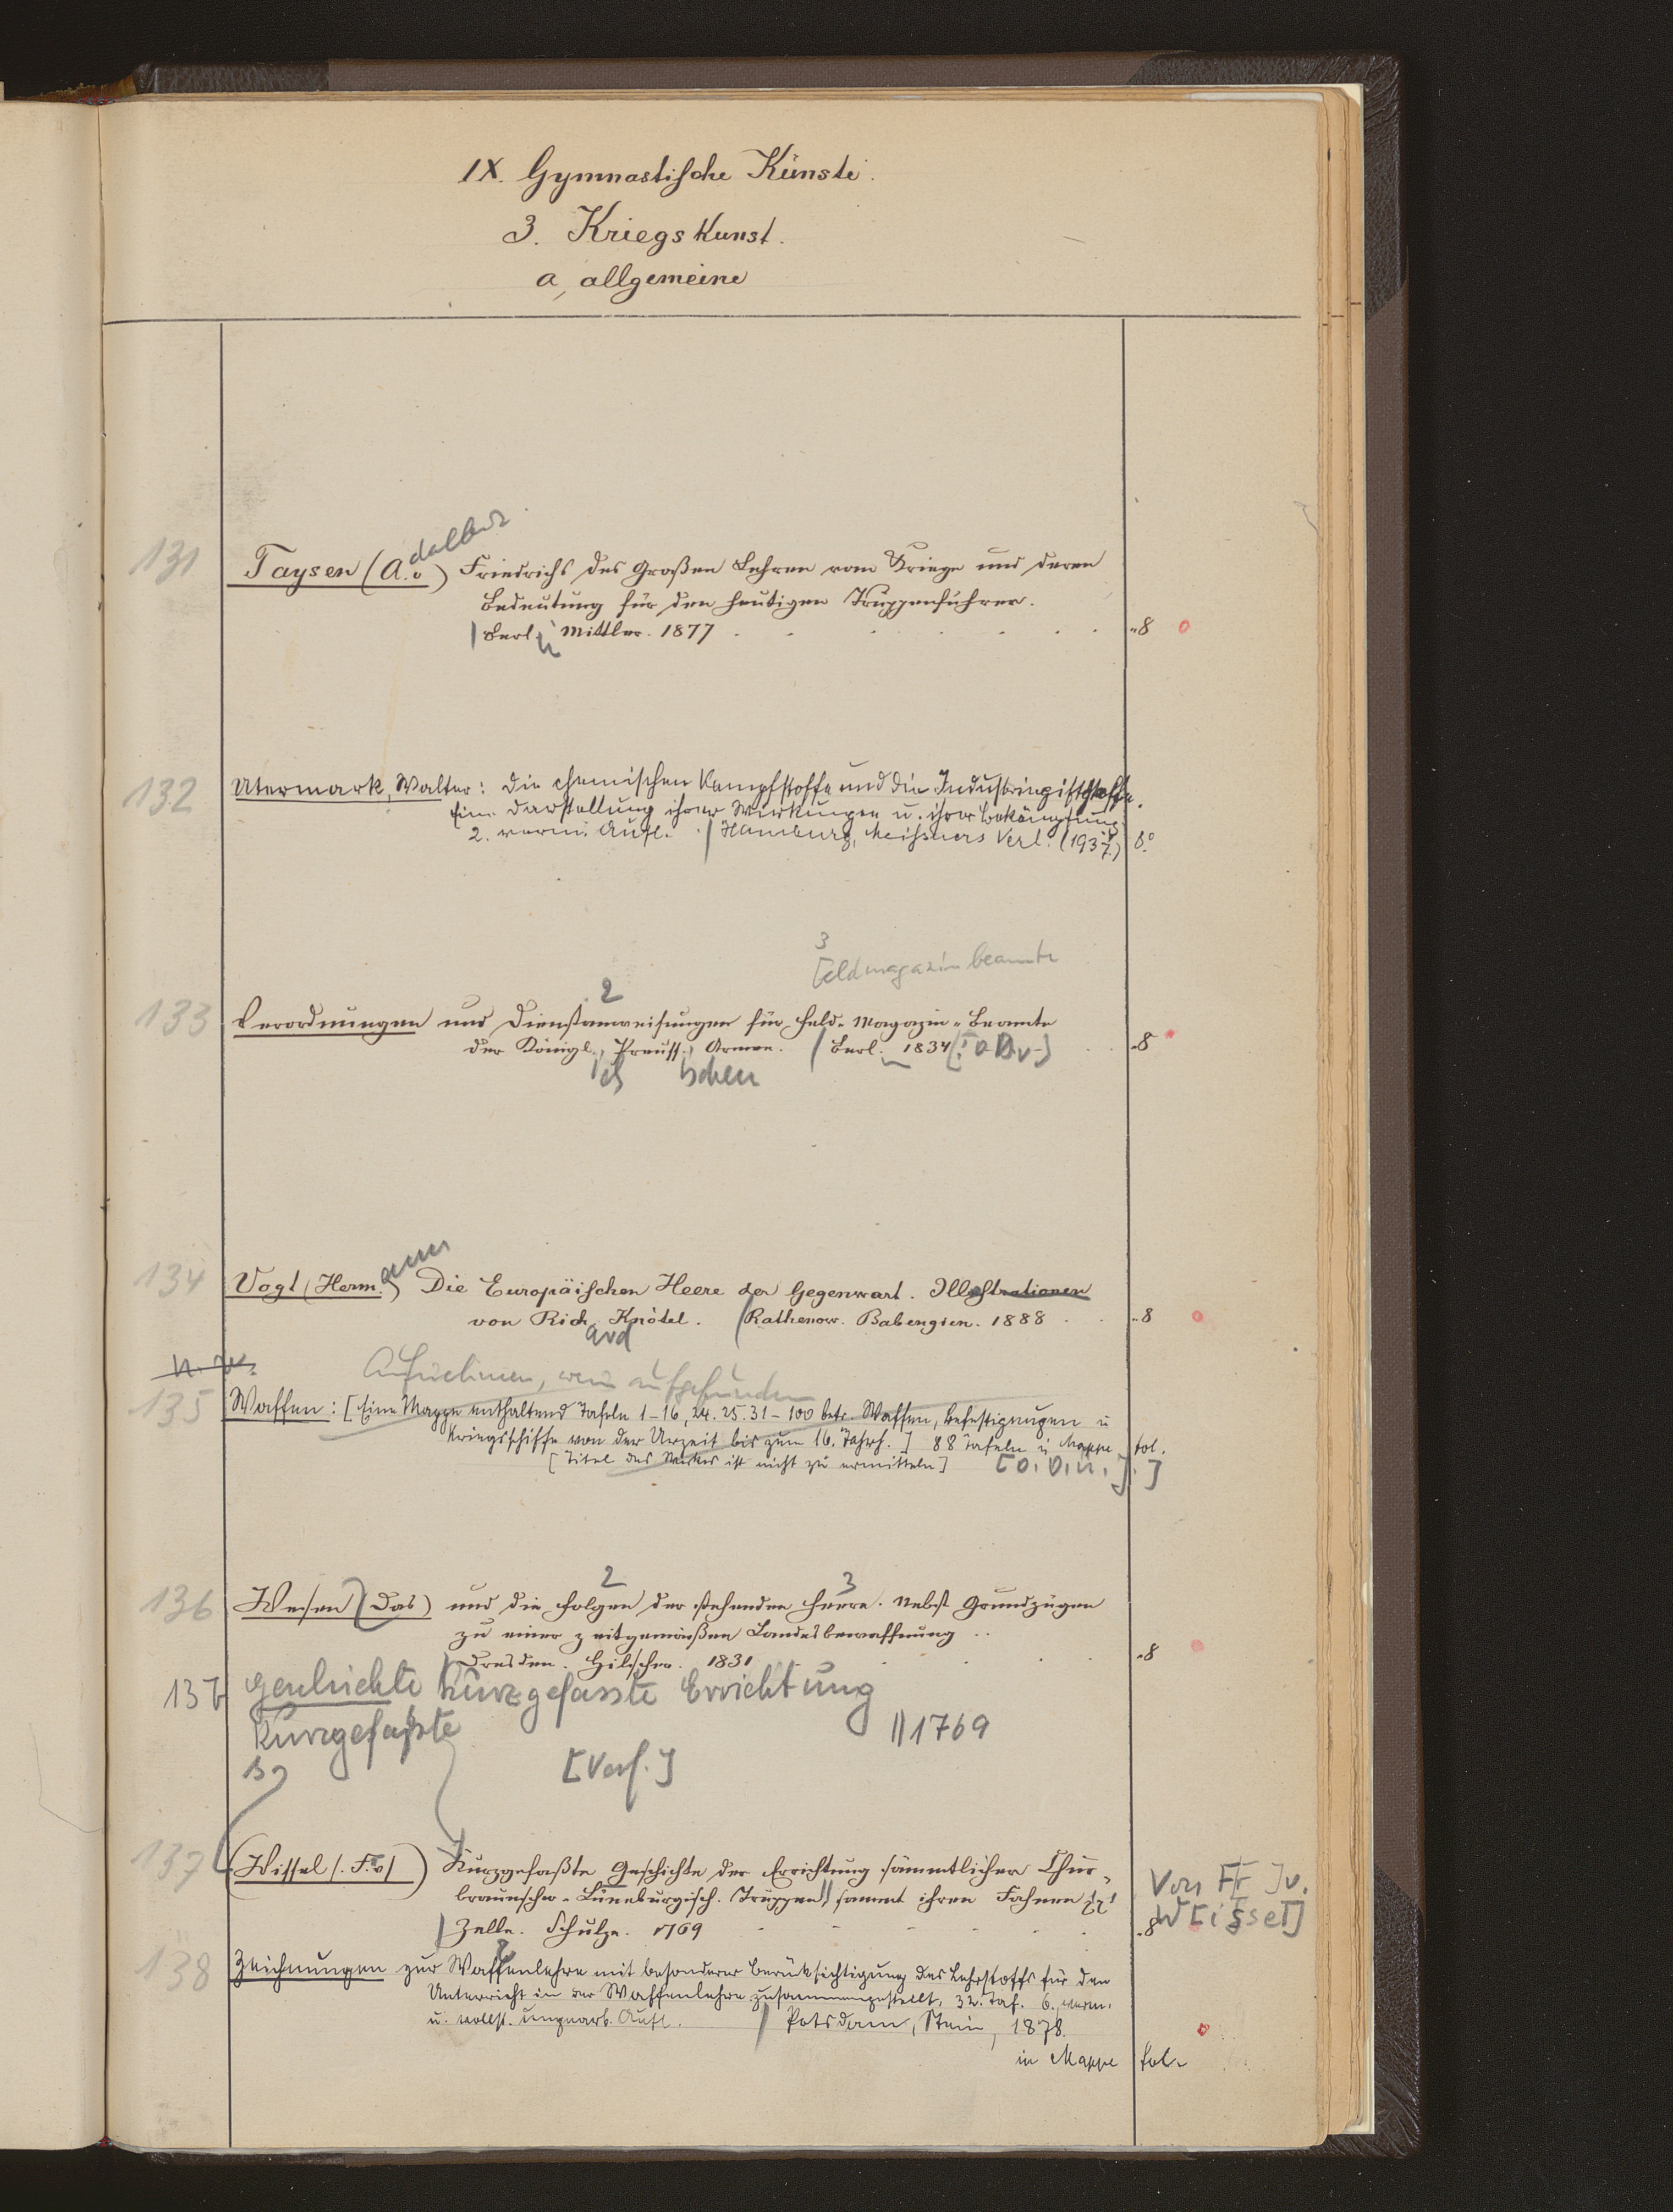 IX. Gymnastische Künste.
3. Kriegskunst.
a, allgemeine
dalbert
131 Taysen (A. v) Friedrichs des Großen Lehren vom Kriege und deren
Bedeutung für den heutigen Truppenführer.
Berl. Mittler. 1877 8
132 Utermark, Walter: Die chemischen Kampfstoffe und die Industriegiftstoffe.
Eine Darstellung ihrer Wirkungen u. ihrer Bekämpfung.
2. verm. Aufl. Hamburg, Meissners Verl. (1937.) 8°
3
Feldmagazinbeamte
2
133 Verordnungen und Dienstanweisungen für Feld-Magazin-Beamte
der Königl. Preuss. Armee. Berl. 1834 8
ich schen
ann
134 Vogt (Herm.) Die Europäischen Heere der Gegenwart. Illustrationen
von Rich. Knötel. Rathenow. Babenzien. 1888 8
ard
Aufnehmen, wenn aufgefunden
135 Waffen: [Eine Mappe enthaltend Tafeln 1-16, 24. 25. 31-100 betr. Waffen, Befestigungen u
Kriegsschiffe von der Urzeit bis zum 16. Jahrh.] 88 Tafeln in Mappe fol.
[Titel des Werkes ist nicht zu ermitteln] [O. O. u. J.]
2 3
136 Wesen (Das) und die Folgen der stehenden Heere. Nebst Grundzügen
zu einer zeitgemäßen Landesbewaffnung
Dresden. Hilscher. 1831 8
137 Geschichte kurzgefasste Errichtung
Kurzgefaßte || 1769
[Verf.]
137 (Wissel (F. v) Kurzgefaßte Geschichte der Errichtung sämmtlicher Chur-
braunschw.-Lüneburgisch. Truppen sammt ihren Fahnen
Von Fr[ ]v.
W[issel]
Zelle. Schulze. 1769 8
138 Zeichnungen zur Waffenlehre mit besonderer Berüksichtigung des Lehrstoffs für den
Unterricht in der Waffenlehre zusammengestellt. 32. Taf. 6. verm.
u. vollst. umgearb. Aufl. Potsdam, Stein, 1878.
in Mappe fol.